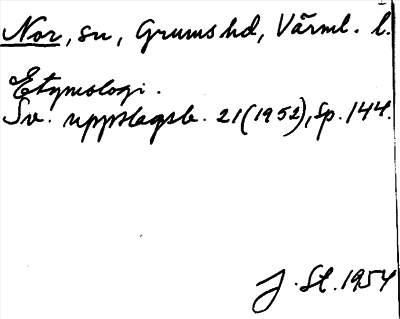 Nor, sn, Grums hd, Värml. l.
Etymologi.
Sv. uppslagsb. 21(1952), sp. 144.
J. St. 1954